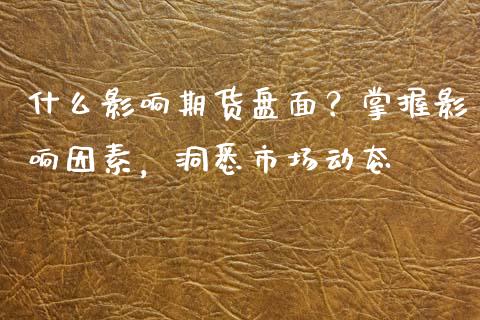 什么影响期货盘面？掌握影
响因素，洞悉市场动态